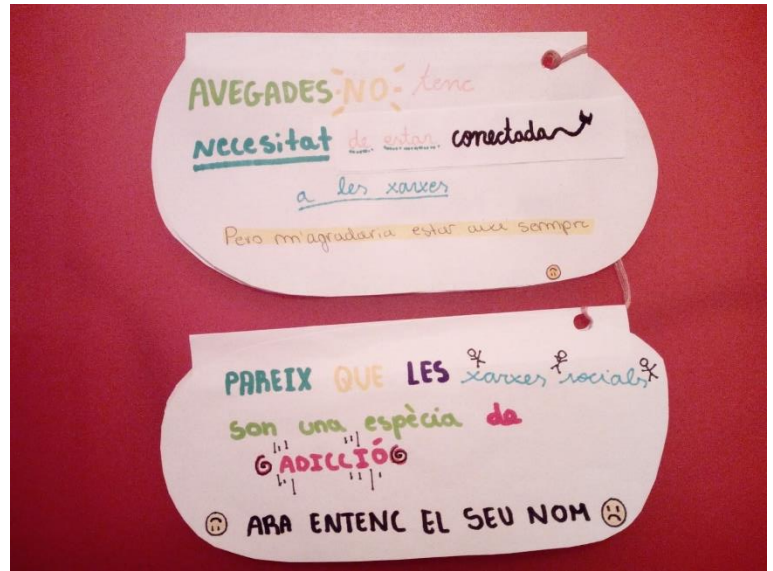 AVEGADES NO tenc
NECESITAT de estar conectada
a les xarxes
Pero m'agradaria estar aixi sempre
PAREIX QUE LES xarxes socials
son una espècia de
ADICCIÓ
ARA ENTENC EL SEU NOM